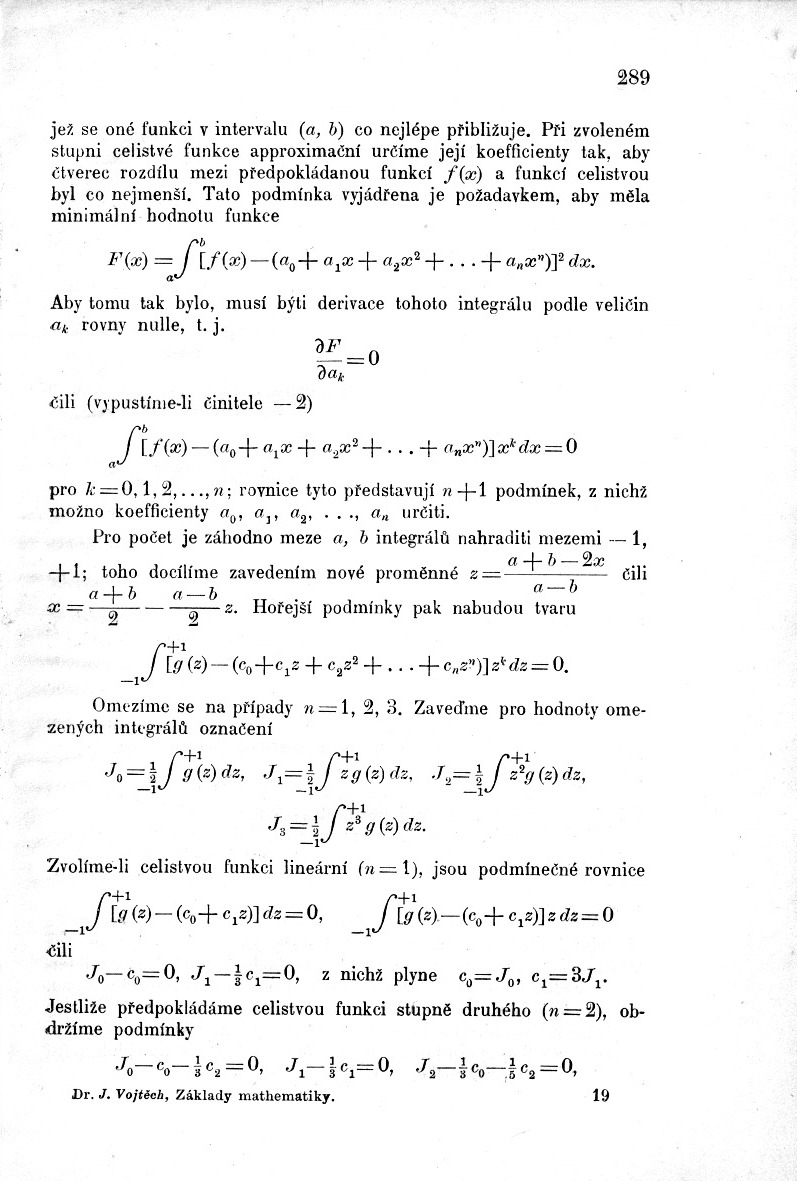 289
jež se oné funkci v intervalu (a, b) co nejlépe přibližuje. Při zvoleném
stupni celistvé funkce approximační určíme její koefficienty tak, aby
čtverec rozdílu mezi předpokládanou funkcí f(x) a funkcí celistvou
byl co nejmenší. Tato podmínka vyjádřena je požadavkem, aby měla
minimální hodnotu funkce
F(x) = ∫ₐᵇ [f(x) — (a₀ + a₁x + a₂x² + . . . + aₙxⁿ)]² dx.
Aby tomu tak bylo, musí býti derivace tohoto integrálu podle veličin
aₖ rovny nulle, t. j.
∂F/∂aₖ = 0
čili (vypustíme-li činitele — 2)
∫ₐᵇ [f(x) — (a₀ + a₁x + a₂x² + . . . + aₙxⁿ)] xᵏ dx = 0
pro k = 0, 1, 2, . . ., n; rovnice tyto představují n + 1 podmínek, z nichž
možno koefficienty a₀, a₁, a₂, . . ., aₙ určiti.
Pro počet je záhodno meze a, b integrálů nahraditi mezemi — 1,
+ 1; toho docílíme zavedením nové proměnné z = (a + b — 2x)/(a — b) čili
x = (a + b)/2 — (a — b)/2 z. Hořejší podmínky pak nabudou tvaru
∫₋₁⁺¹ [g(z) — (c₀ + c₁z + c₂z² + . . . + cₙzⁿ)] zᵏ dz = 0.
Omezíme se na případy n = 1, 2, 3. Zaveďme pro hodnoty ome-
zených integrálů označení
J₀ = ½ ∫₋₁⁺¹ g(z) dz, J₁ = ½ ∫₋₁⁺¹ z g(z) dz, J₂ = ½ ∫₋₁⁺¹ z² g(z) dz,
J₃ = ½ ∫₋₁⁺¹ z³ g(z) dz.
Zvolíme-li celistvou funkci lineární (n = 1), jsou podmínečné rovnice
∫₋₁⁺¹ [g(z) — (c₀ + c₁z)] dz = 0, ∫₋₁⁺¹ [g(z) — (c₀ + c₁z)] z dz = 0
čili
J₀ — c₀ = 0, J₁ — ⅓ c₁ = 0, z nichž plyne c₀ = J₀, c₁ = 3J₁.
Jestliže předpokládáme celistvou funkci stupně druhého (n = 2), ob-
držíme podmínky
J₀ — c₀ — ⅓ c₂ = 0, J₁ — ⅓ c₁ = 0, J₂ — ⅓ c₀ — ⅕ c₂ = 0,
Dr. J. Vojtěch, Základy mathematiky. 19